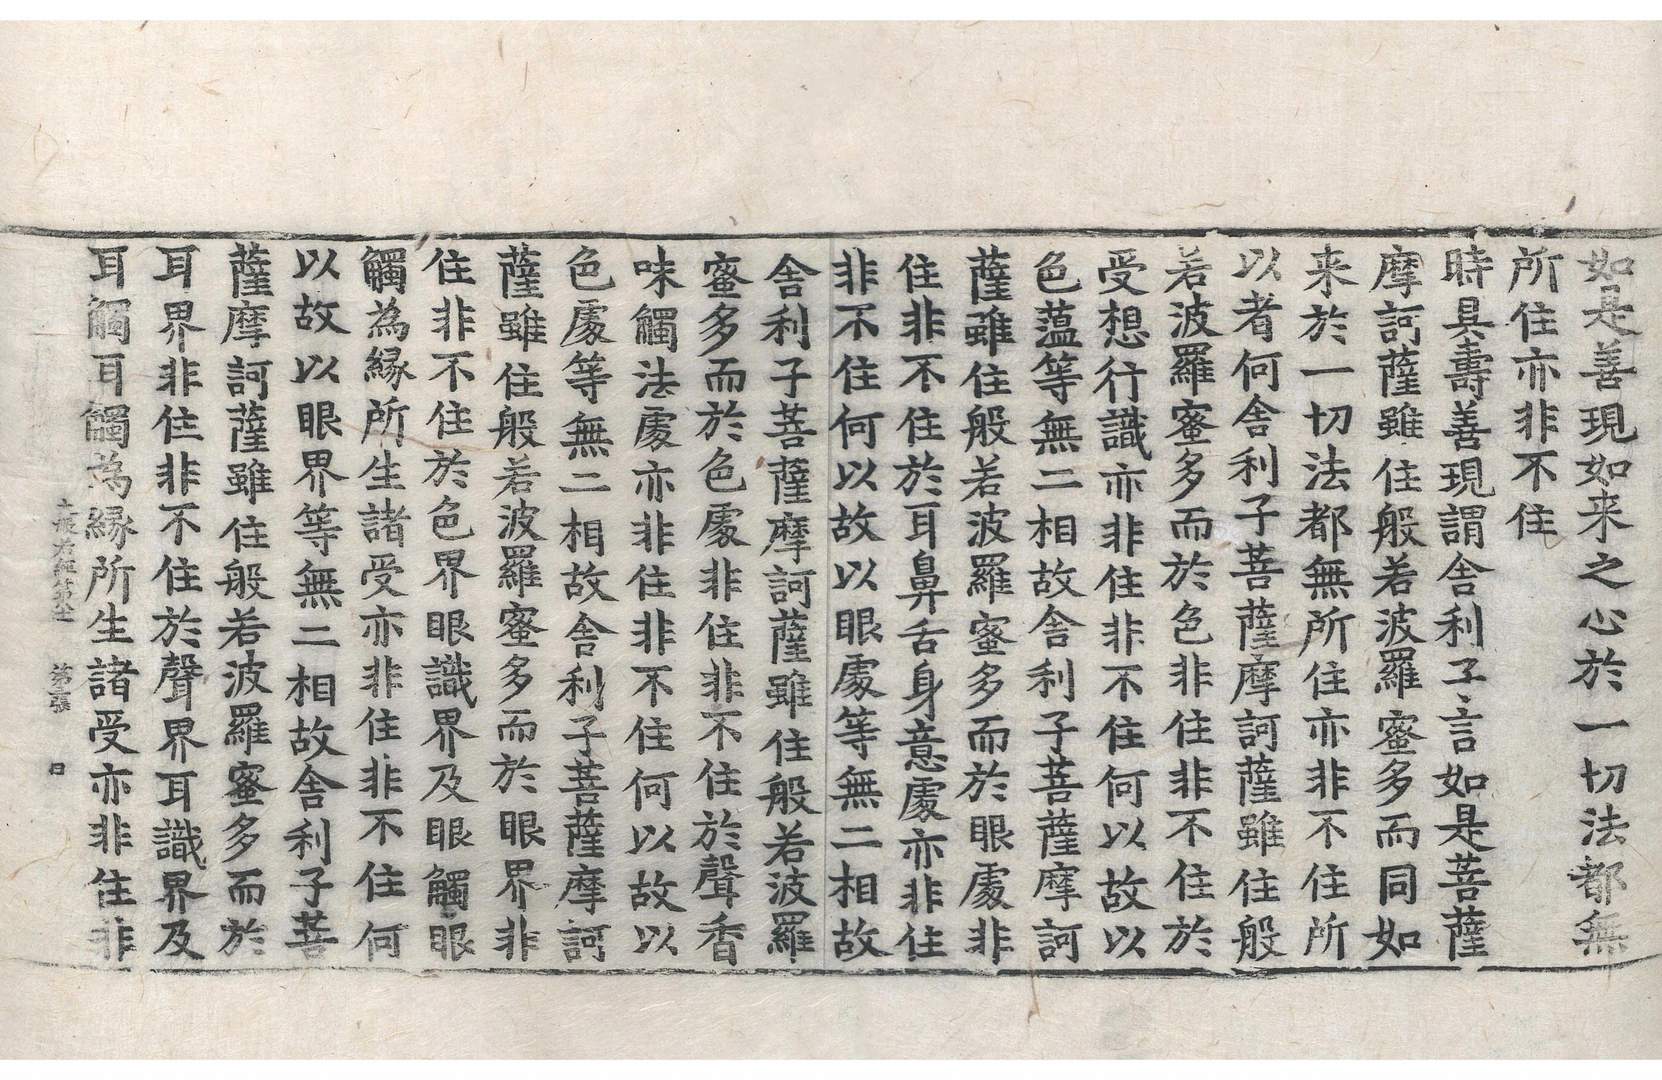 如是善現如来之心於一切法都無
所住亦非不住
時具壽善現謂舍利子言如是菩薩
摩訶薩雖住般若波羅蜜多而同如
来於一切法都無所住亦非不住所
以者何舍利子菩薩摩訶薩雖住般
若波羅蜜多而於色非住非不住於
受想行識亦非住非不住何以故以
色蕴等無二相故舍利子菩薩摩訶
薩雖住般若波羅蜜多而於眼處非
住非不住於耳鼻舌身意處亦非住
非不住何以故以眼處等無二相故
舍利子菩薩摩訶薩雖住般若波羅
蜜多而於色處非住非不住於聲香
味觸法處亦非住非不住何以故以
色處等無二相故舍利子菩薩摩訶
薩雖住般若波羅蜜多而於眼界非
住非不住於色界眼識界及眼觸眼
觸為縁所生諸受亦非住非不住何
以故以眼界等無二相故舍利子菩
薩摩訶薩雖住般若波羅蜜多而於
耳界非住非不住於聲界耳識界及
耳觸耳觸為縁所生諸受亦非住非
般若經第 第 張